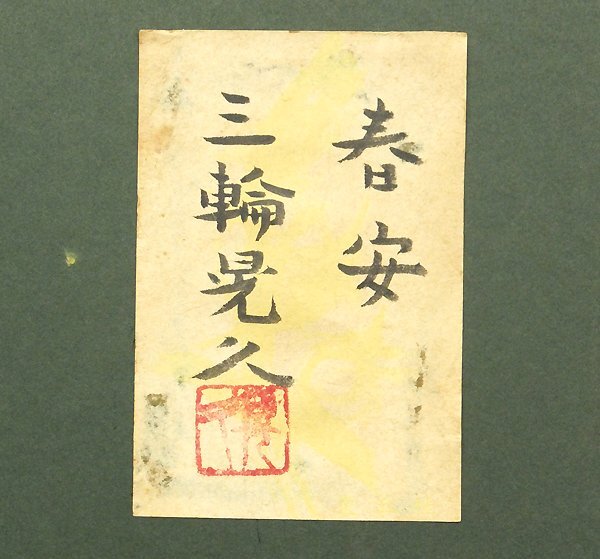 春安
三輪晃久